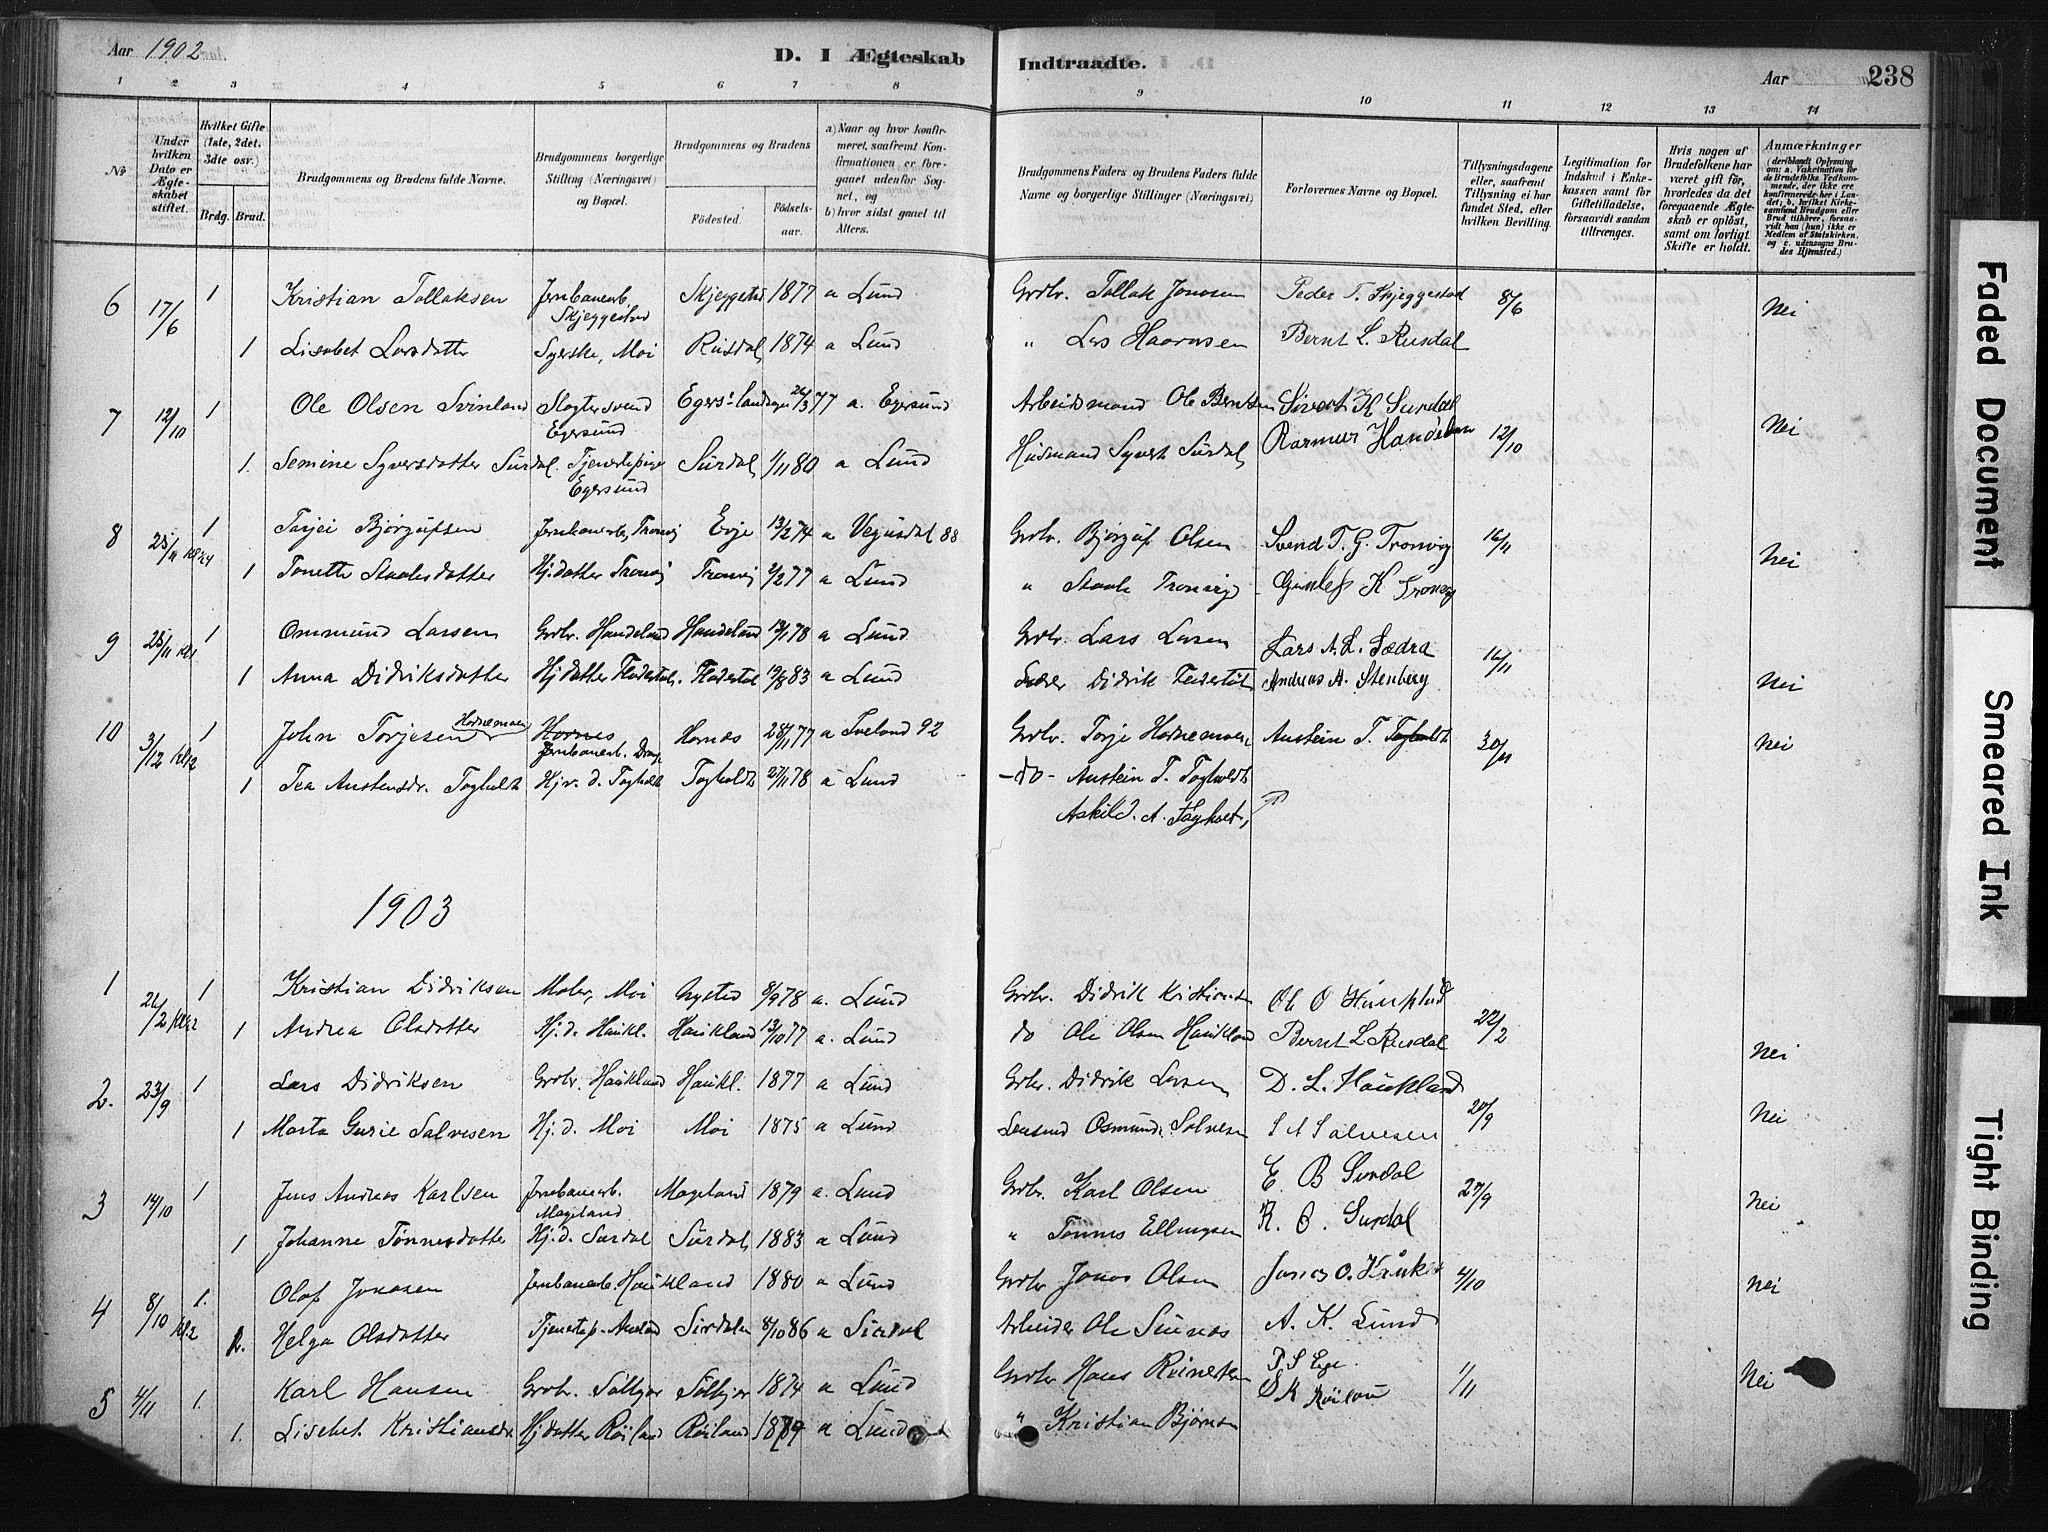 Aar 1902
D. I Ægteskab Indtraadte.
Aar 238
1 2 3 4 5 6 7 8 9 10 11 12 13 14
No
Under hvilken Dato er Ægteskabet stiftet.
Hvilket Gifte (1ste, 2det, 3die osv.)
Brdg. Brud.
Brudgommens og Brudens fulde Navne.
Brudgommens borgerlige Stilling (Næringsvei) og Bopæl.
Brudgommens og Brudens
Födested. Födselsaar.
a) Naar og hvor konfirmeret, saafremt Konfirmationen er foregaaet udenfor Sognet, og
b) hvor sidst gaaet til Alters.
Brudgommens Faders og Brudens Faders fulde Navne og borgerlige Stillinger (Næringsvei)
Forlovernes Navne og Bopæl.
Tillysningsdagene eller, saafremt Tillysning ei har fundet Sted, efter hvilken Bevilling.
Legitimation for Indskud i Enkekassen samt for Giftetilladelse, forsaavidt saadan tiltrænges.
Hvis nogen af Brudefolkene har været gift för, hvorledes da det foregaaende Ægteskab er oplöst, samt om lovligt Skifte er holdt.
Anmærkninger (deriblandt Oplysning om: a. Vakcination for de Brudefolks Vedkommende, der ikke ere konfirmerede her i Landet; b. hvilket Kirkesamfund Brudgom eller Brud tilhörer, forsaavidt han (hun) ikke er Medlem af Statskirken, og c. udensogns Brudes Hjemsted.
6 17/6 1 Kristian Tollaksen Jernbanearb. Skjeggestad Skjeggestad 1877 a Lund Grdbr. Tollak Jonasen Peder T. Skjeggestad 8/6 Nei
1 Lisabet Larsdatter Syerske, Moi Rusdal 1874 a Lund " Lars Haavorsen Bernt L. Rusdal
7 12/10 1 Ole Olsen Svinland Slagtersvend Egersund Egers. landsogn 26/3 77 a. Egersund Arbeidsmand Ole Berntsen Sivert K Surdal 12/10 Nei
1. Semine Syversdatter Surdal Tjenestepige Egersund Surdal 1/11 80 a Lund Husmand Syvert Surdal Rasmus Handeland
8 25/11 1 Tarjei Bjørgulfsen Jernbanearb. Tronvig Evje 13/2 74 a Vegusdal 88 Grdbr. Bjørgulf Olsen Svend T. G. Tronvig 16/11 Nei
1 Tonette Staalesdatter Hj. datter Tronvig Tronvig 2/2 77 a Lund " Staale Tronvig Gunlef K Tronvig
9 25/11 kl 1 1 Ommund Larsen Grdbr. Handeland Handeland 13/1 78 a Lund Grdbr. Lars Larsen Lars A. L. Sædra 16/11
1 Anna Didriksdatter Hj datter 19/8 83 a Lund Didrik Andreas A. Stenberg Nei
10 3/12 kl 12 1 John Torjesen Hornemoen Hornes Jernbanearb. Hornes 28/11 77 a Iveland 92 Grdbr. Torje Hornemoen Austein T. Togholdt 30/11 Nei
1 Tea Austensdr. Togholdt Hjv. d. Togholdt Togholdt 27/11 78 a Lund - do - Austein T. Togholdt
Askild. A. Togholt,
1903
1 26/2 kl 12 1 Kristian Didriksen Maler, Moi Nysted 8/9 78 a. Lund Grdbr. Didrik Kristiansen 22/2
1 Andrea Olsdatter Hj. d. Haukl. Haukland 13/10 77 a. Lund do Ole Olsen Haukland Bernt L Rusdal Nei
2. 23/9 1 Lars Didriksen Grdbr. Haukland Haukl. 1877 a Lund Grbr. Didrik Larsen D. L. Haukland 20/9 Nei
1 Marta Gurie Salvesen Hj. d. Moi Moi 1875 a Lund Lensmd Osmund Salvesen S A Salvesen
3 14/10 1 Jens Andreas Karlsen Jernbanearb. Magiland Mageland 1879 a. Lund Grdbr. Karl Olsen E. B Surdal 27/9 Nei
1 Johanne Tønnesdatter Hj. d. Surdal Surdal 1883 a Lund " Tønnes Ellingsen R. O. Surdal
4 8/10 kl 2 1. Olaf Jonasen Jernbanearb. Haukland 1880 a Lund Grdbr Jonas Olsen Jonas O. Hauk 4/10 Nei
1. Helga Olsdatter Tjenestep. Sirdalen 8/10 86 a Sirdal Arbeider Ole A. K. Lund
5 4/11 1. Karl Hansen Grdbr. 1874 a Lund Grdbr Hans P S Ege 1/11 Nei
1. Lisebet Kristiansdr Hj datter Røiland Røiland 1879 a Lund " Kristian Bjørnsen S K Røiland
Faded Document
Smeared Ink
Tight Binding